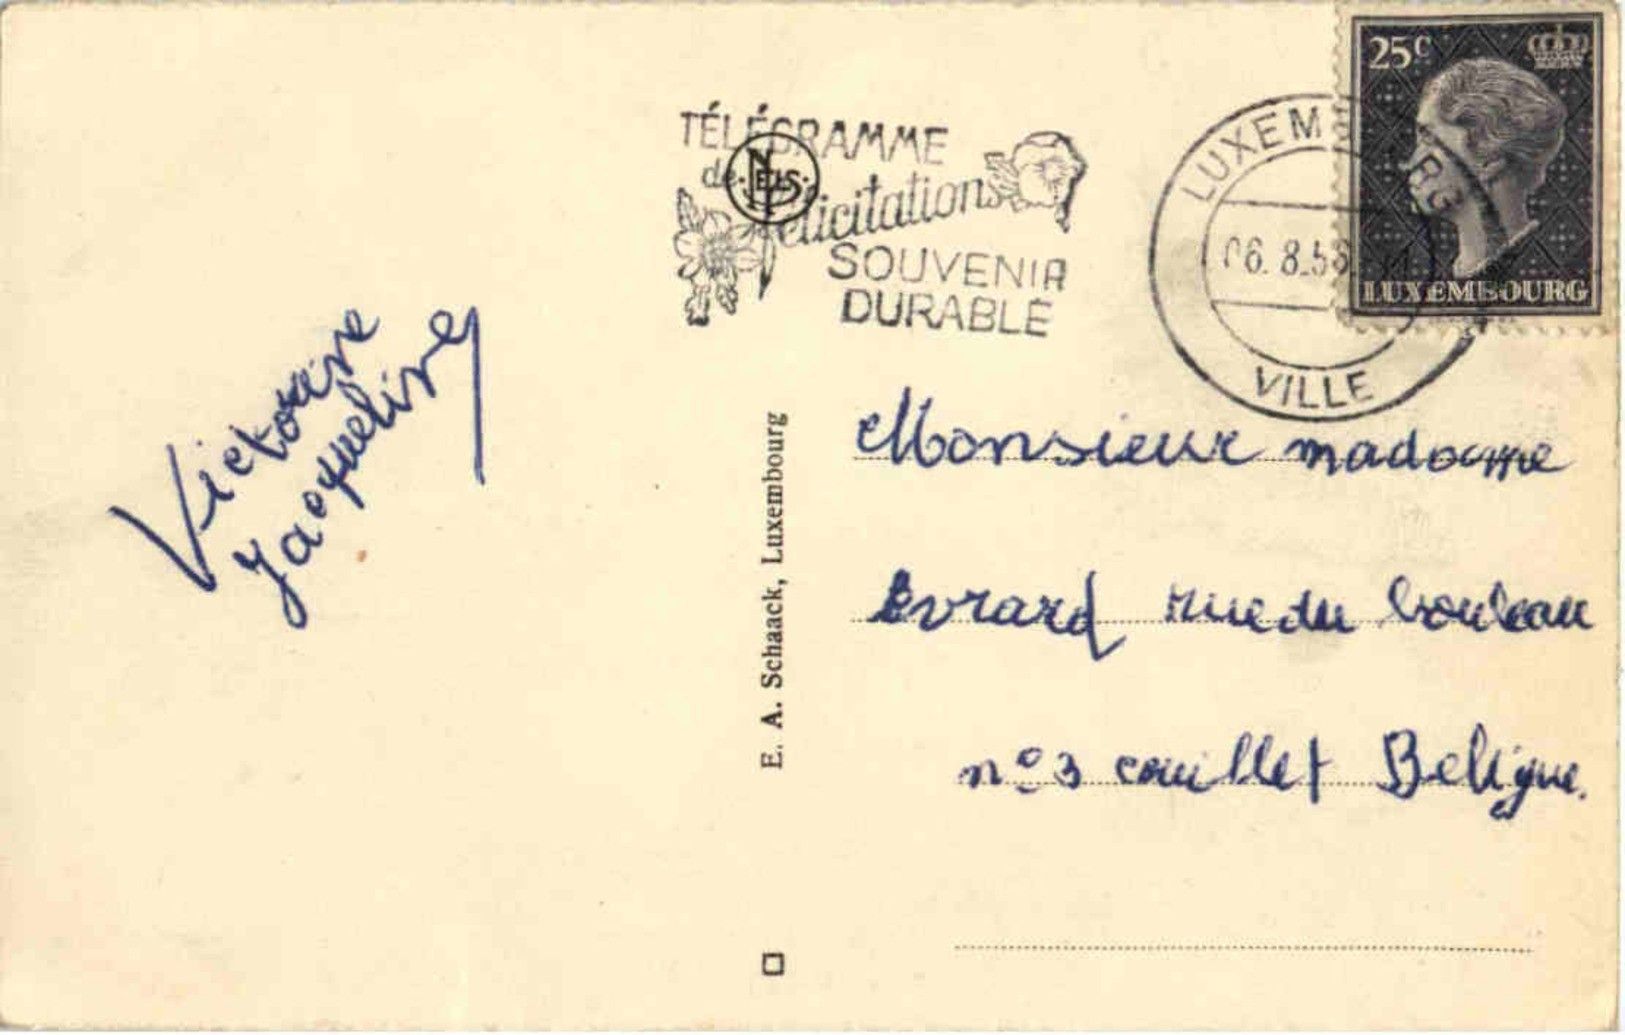 TÉLÉGRAMME
de félicitations
SOUVENIR
DURABLE
NELS
LUXEMBOURG
06.8.58
VILLE
25c
LUXEMBOURG
Victorine
Jacqueline
E. A. Schaack, Luxembourg
Monsieur madame
Evrard rue du bouleau
n° 3 couillet Beligue.